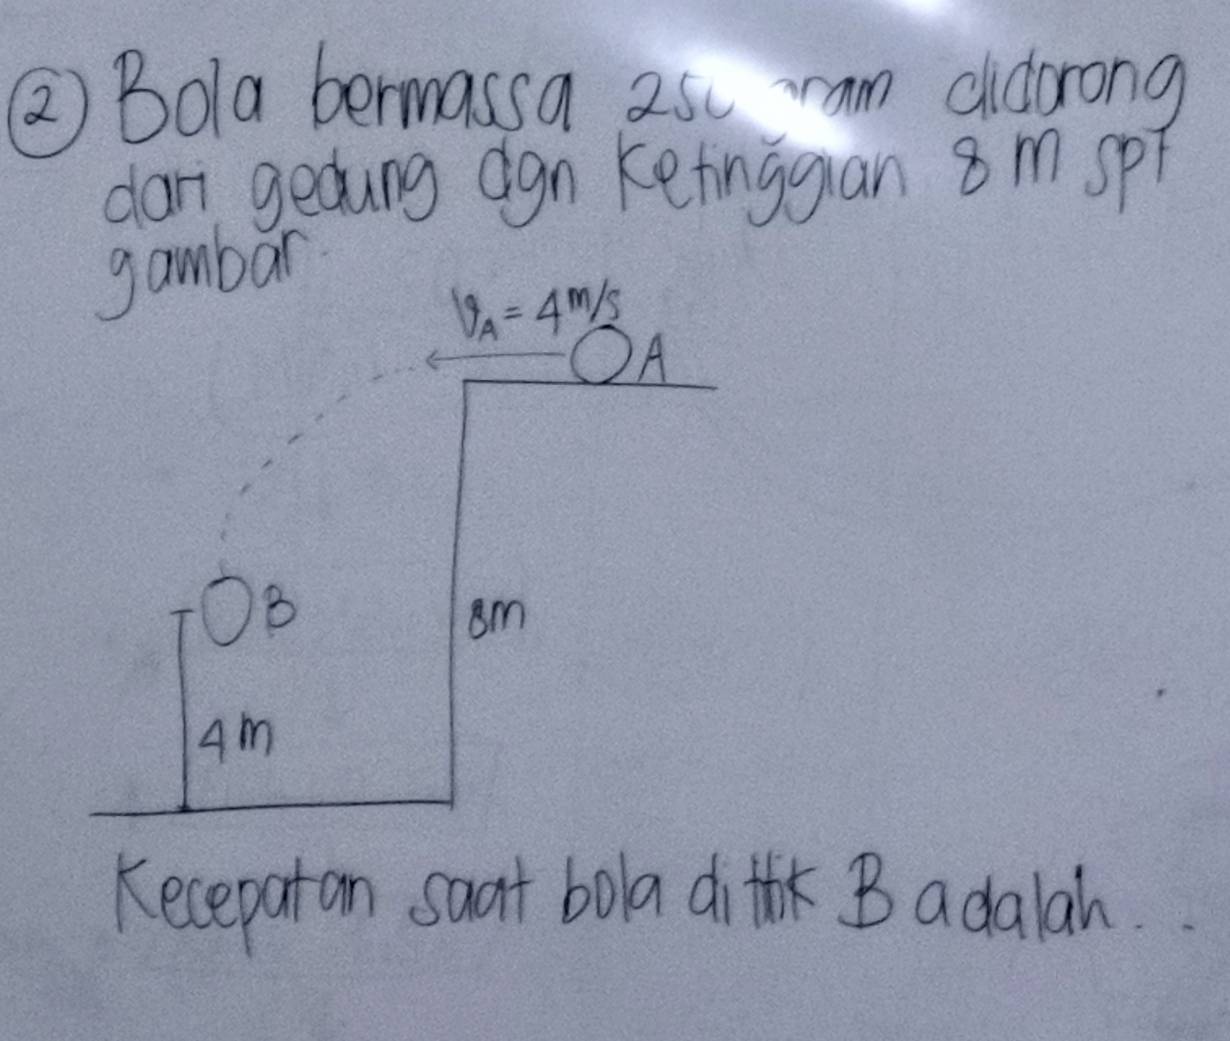 ② Bola bermassa didorong
dari gedung dgn Ketinggian 8 m spt
gambar.
VA = 4 m/s
A
B
8m
4m
Kecepatan saat bola di titik B adalah...